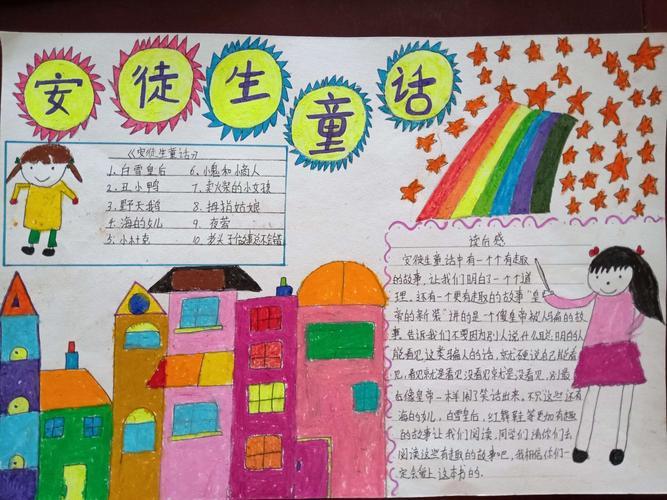 安徒生童话
《安徒生童话》
1、白雪皇后 6、小鬼和小商人
2、丑小鸭 7、卖火柴的小女孩
3、野天鹅 8、拇指姑娘
4、海的女儿 9、夜莺
5、小杜克 10、老头子做事总不会错
读后感
安徒生童话中有一个个有趣
的故事，让我们明白了一个个道
理，还有一个更有趣的故事"皇
帝的新装"讲的是一个傻皇帝被人骗的故
事，告诉我们不要因为别人说什么聪明的人
能看见这类骗人的话，就硬说自己能看
见，看见就是看见没看见就是没看见，别最
后像皇帝一样闹了笑话出来，不只这些还有
海的女儿，白雪皇后，红舞鞋等更加有趣
的故事让我们阅读，同学们请你们去
阅读这些有趣的故事吧，我相信你们一
定会爱上这本书的．